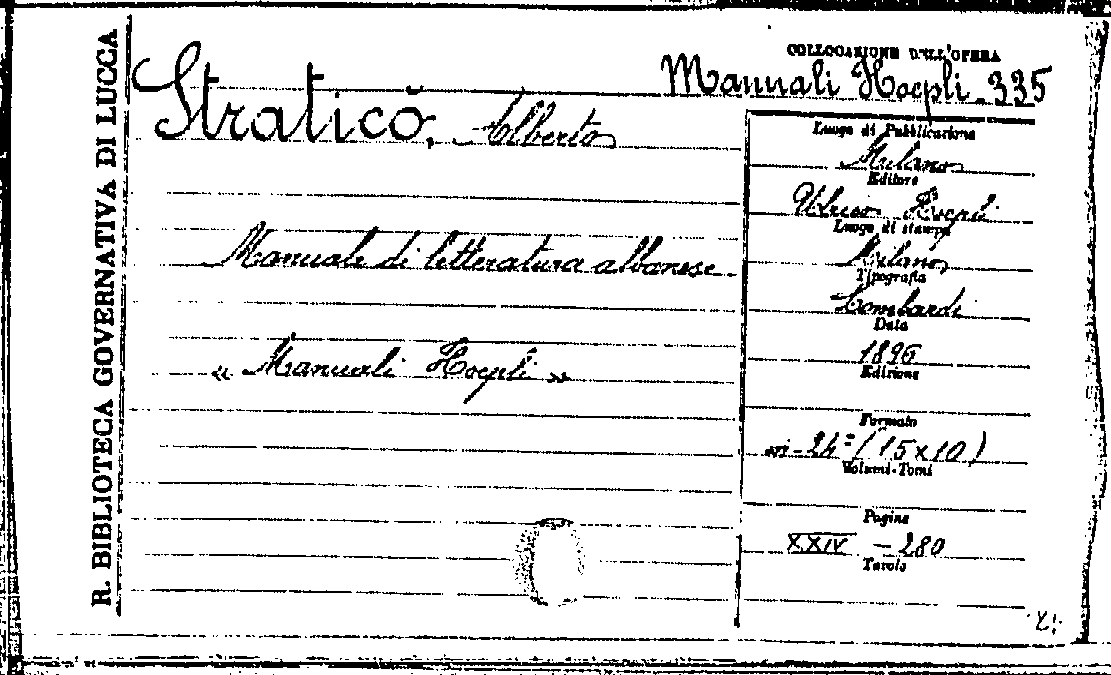 R. BIBLIOTECA GOVERNATIVA DI LUCCA
COLLOCAZIONE DELL'OPERA
Manuali Hoepli 335
Straticò, Alberto
Luogo di Pubblicazione
Milano
Editore
Ulrico Hoepli
Luogo di stampa
Manuale di letteratura albanese.
Milano
Tipografia
Lombardi
Data
1896
« Manuali Hoepli »
Edizione
Formato
in-24º (15x10)
Volumi-Tomi
Pagine
XXIV - 280
Tavole